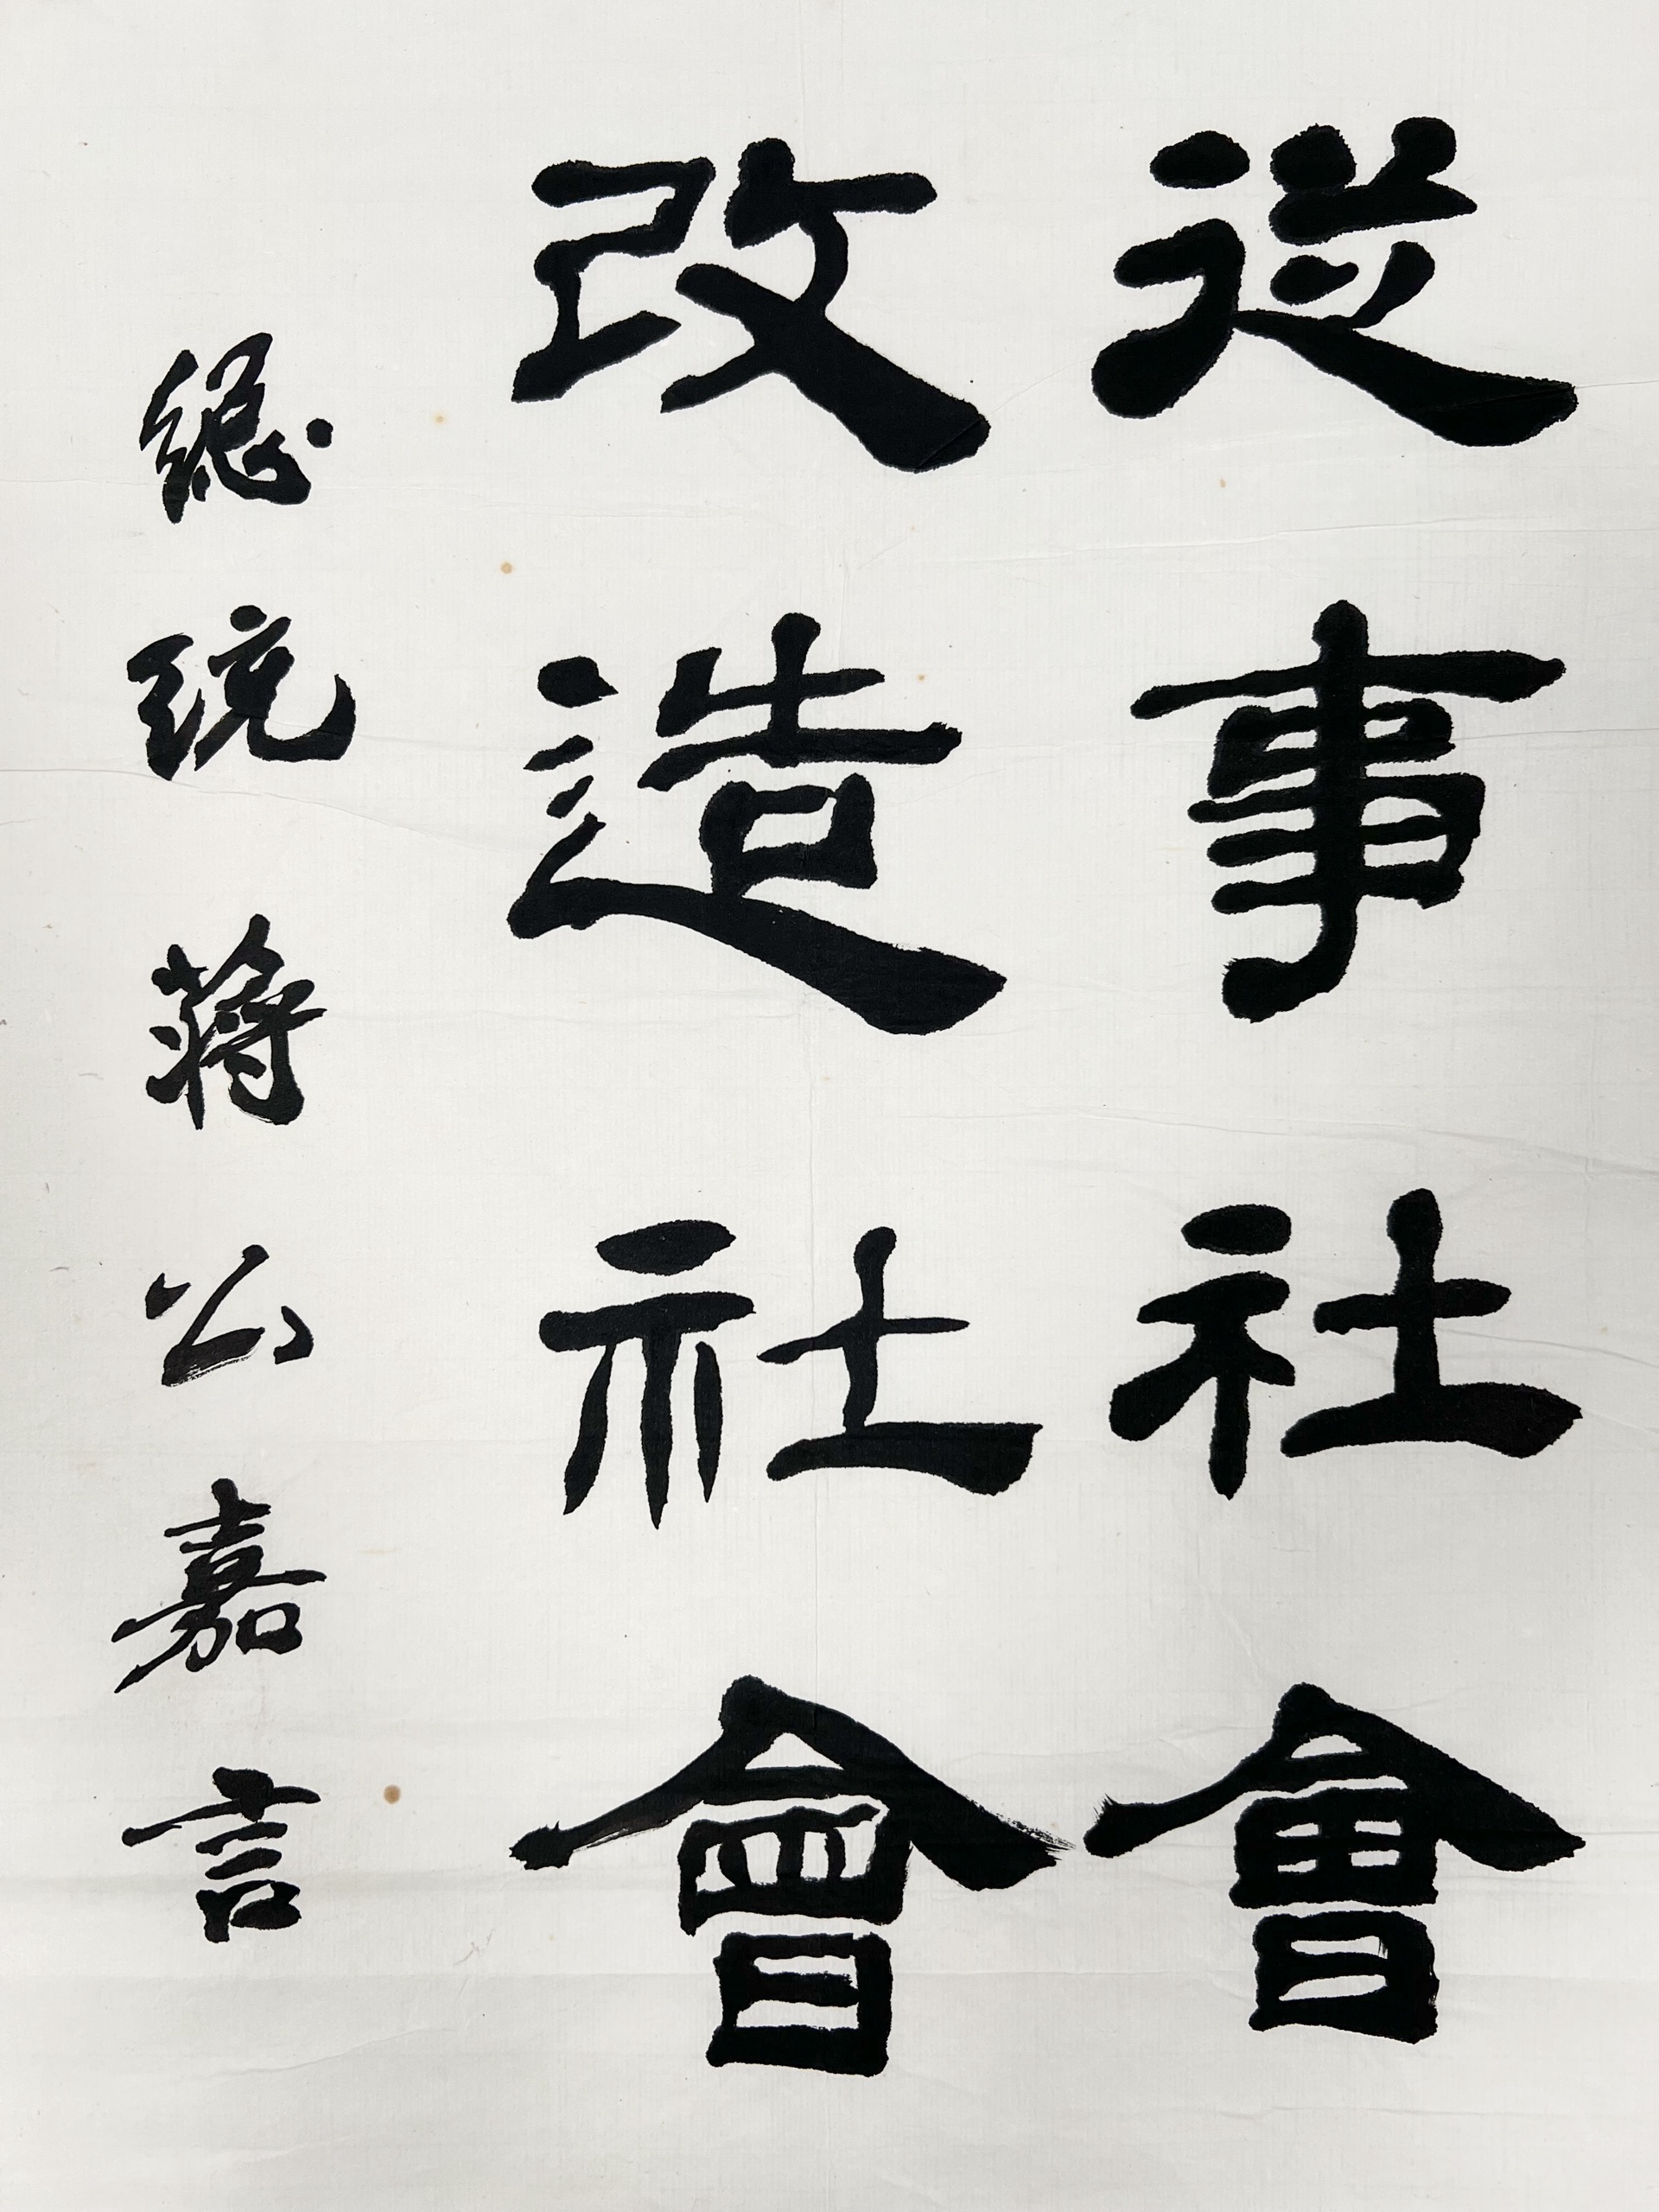 從事社會
改造社會
總統蔣公嘉言